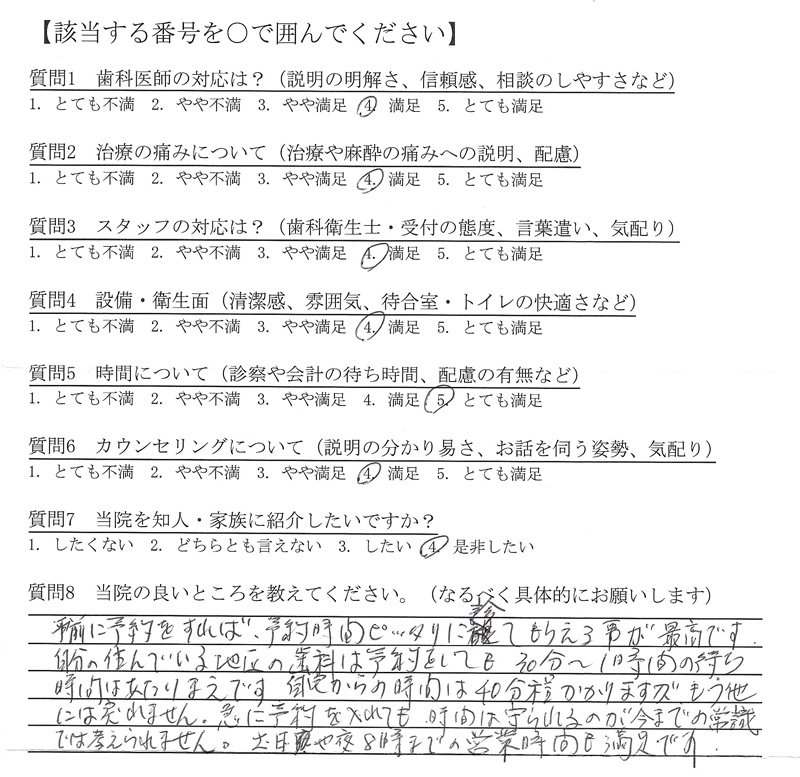 【該当する番号を○で囲んでください】
質問1 歯科医師の対応は？（説明の明解さ、信頼感、相談のしやすさなど）
1. とても不満 2. やや不満 3. やや満足 4. 満足 5. とても満足
質問2 治療の痛みについて（治療や麻酔の痛みへの説明、配慮）
1. とても不満 2. やや不満 3. やや満足 4. 満足 5. とても満足
質問3 スタッフの対応は？（歯科衛生士・受付の態度、言葉遣い、気配り）
1. とても不満 2. やや不満 3. やや満足 4. 満足 5. とても満足
質問4 設備・衛生面（清潔感、雰囲気、待合室・トイレの快適さなど）
1. とても不満 2. やや不満 3. やや満足 4. 満足 5. とても満足
質問5 時間について（診察や会計の待ち時間、配慮の有無など）
1. とても不満 2. やや不満 3. やや満足 4. 満足 5. とても満足
質問6 カウンセリングについて（説明の分かり易さ、お話を伺う姿勢、気配り）
1. とても不満 2. やや不満 3. やや満足 4. 満足 5. とても満足
質問7 当院を知人・家族に紹介したいですか？
1. したくない 2. どちらとも言えない 3. したい 4. 是非したい
質問8 当院の良いところを教えてください。（なるべく具体的にお願いします）
事前に予約をすれば、予約時間ピッタリに診てもらえる事が最高です.
自分の住んでいる地区の歯科は予約をしても 30分～1時間の待ち
時間はあたりまえです 自宅からの時間は40分程かかりますが もう他
には戻れません。急に予約を入れても 時間は守られるのが今までの常識
では考えられません。土日や夜8時までの営業時間も満足です.